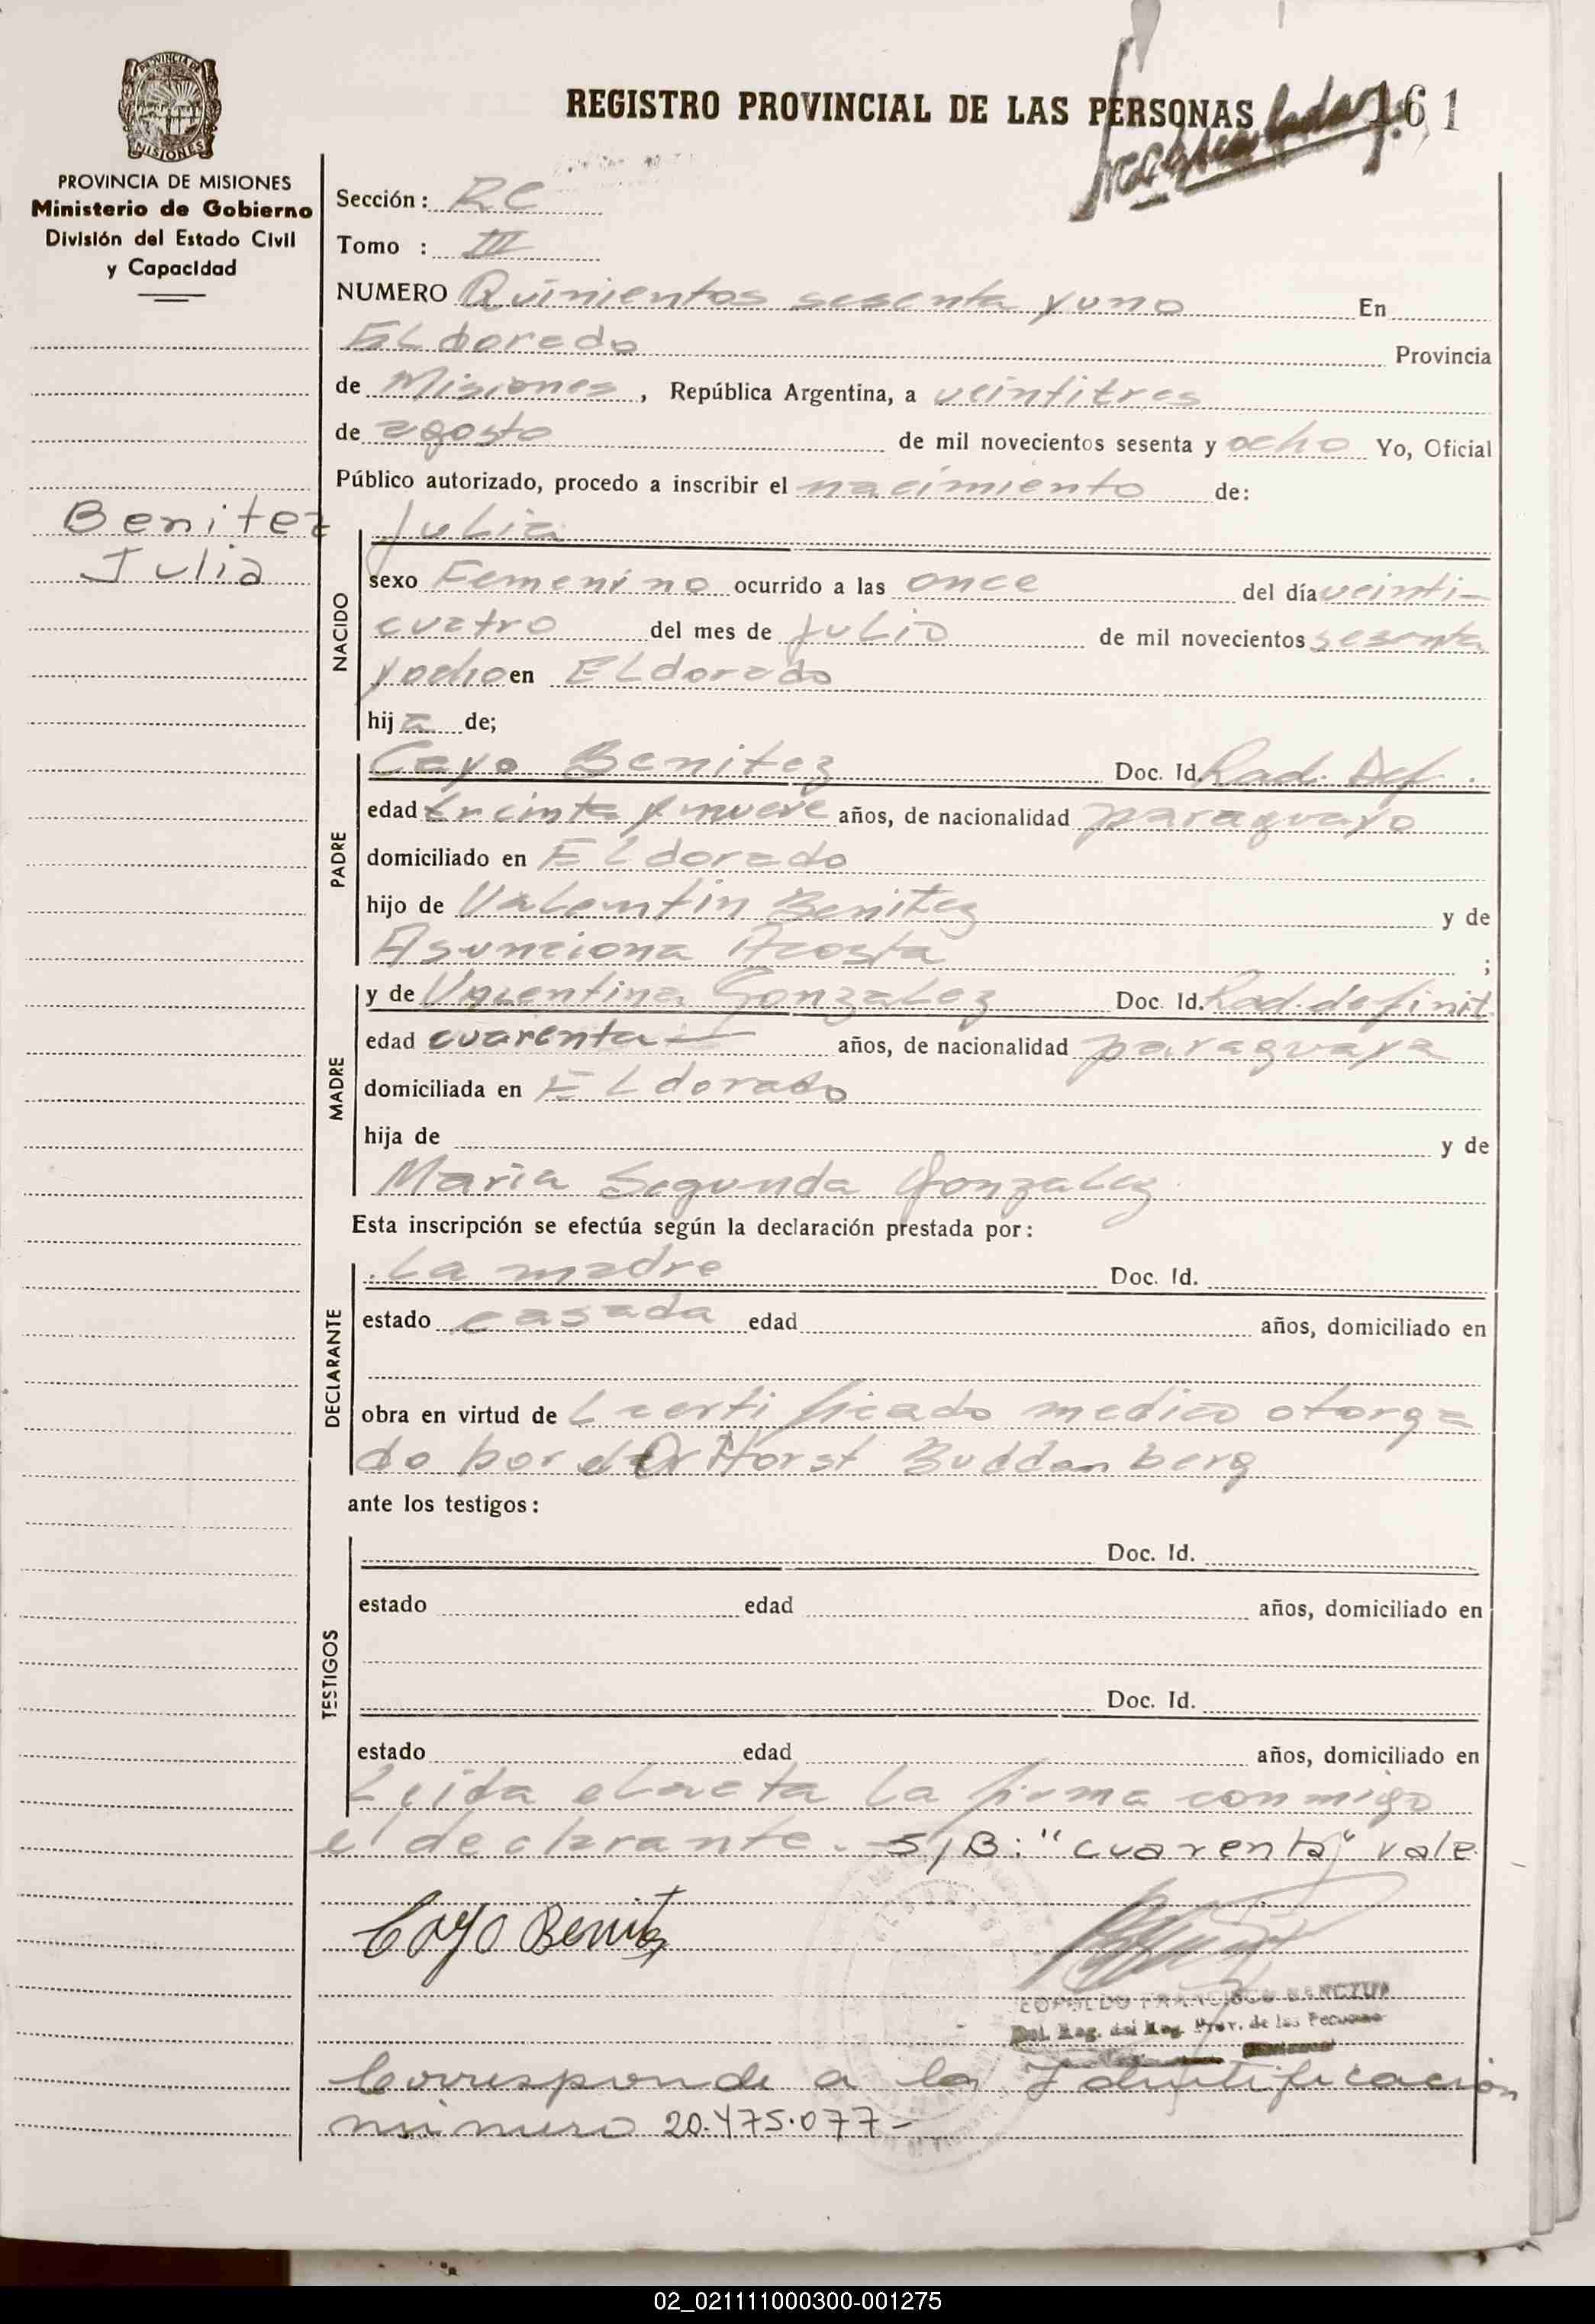 REGISTRO PROVINCIAL DE LAS PERSONAS
161
PROVINCIA DE MISIONES
PROVINCIA DE MISIONES
Ministerio de Gobierno
División del Estado Civil
y Capacidad
Sección: RC
Tomo : III
NUMERO Quinientos sesenta y uno En
Eldorado Provincia
de Misiones, República Argentina, a veintitres
de agosto de mil novecientos sesenta y ocho Yo, Oficial
Público autorizado, procedo a inscribir el nacimiento de:
Benitez
Julia
NACIDO
Julia
sexo Femenino ocurrido a las once del día veinti-
cuatro del mes de julio de mil novecientos sesenta
y ocho en Eldorado
hija de;
PADRE
Cayo Benitez Doc. Id. Rad. Def.
edad treinta y nueve años, de nacionalidad paraguayo
domiciliado en Eldorado
hijo de Valentin Benitez y de
Asunciona Acosta ;
MADRE
y de Valentina Gonzalez Doc. Id. Rad. definit.
edad cuarenta años, de nacionalidad paraguaya
domiciliada en Eldorado
hija de y de
Maria Segunda Gonzalez
Esta inscripción se efectúa según la declaración prestada por:
DECLARANTE
La madre Doc. Id.
estado casada edad años, domiciliado en
obra en virtud de certificado medico otorga
do por el Dr Horst Buddenberg
ante los testigos:
TESTIGOS
Doc. Id.
estado edad años, domiciliado en
Doc. Id.
estado edad años, domiciliado en
Leida el acta la firma conmigo
el declarante. S/B: "cuarenta" vale
Cayo Benitez
LEOPOLDO FRANCISCO
Del. Reg. del Reg. Prov. de las Personas
Corresponde a la Identificación
número 20.475.077-
02_021111000300-001275